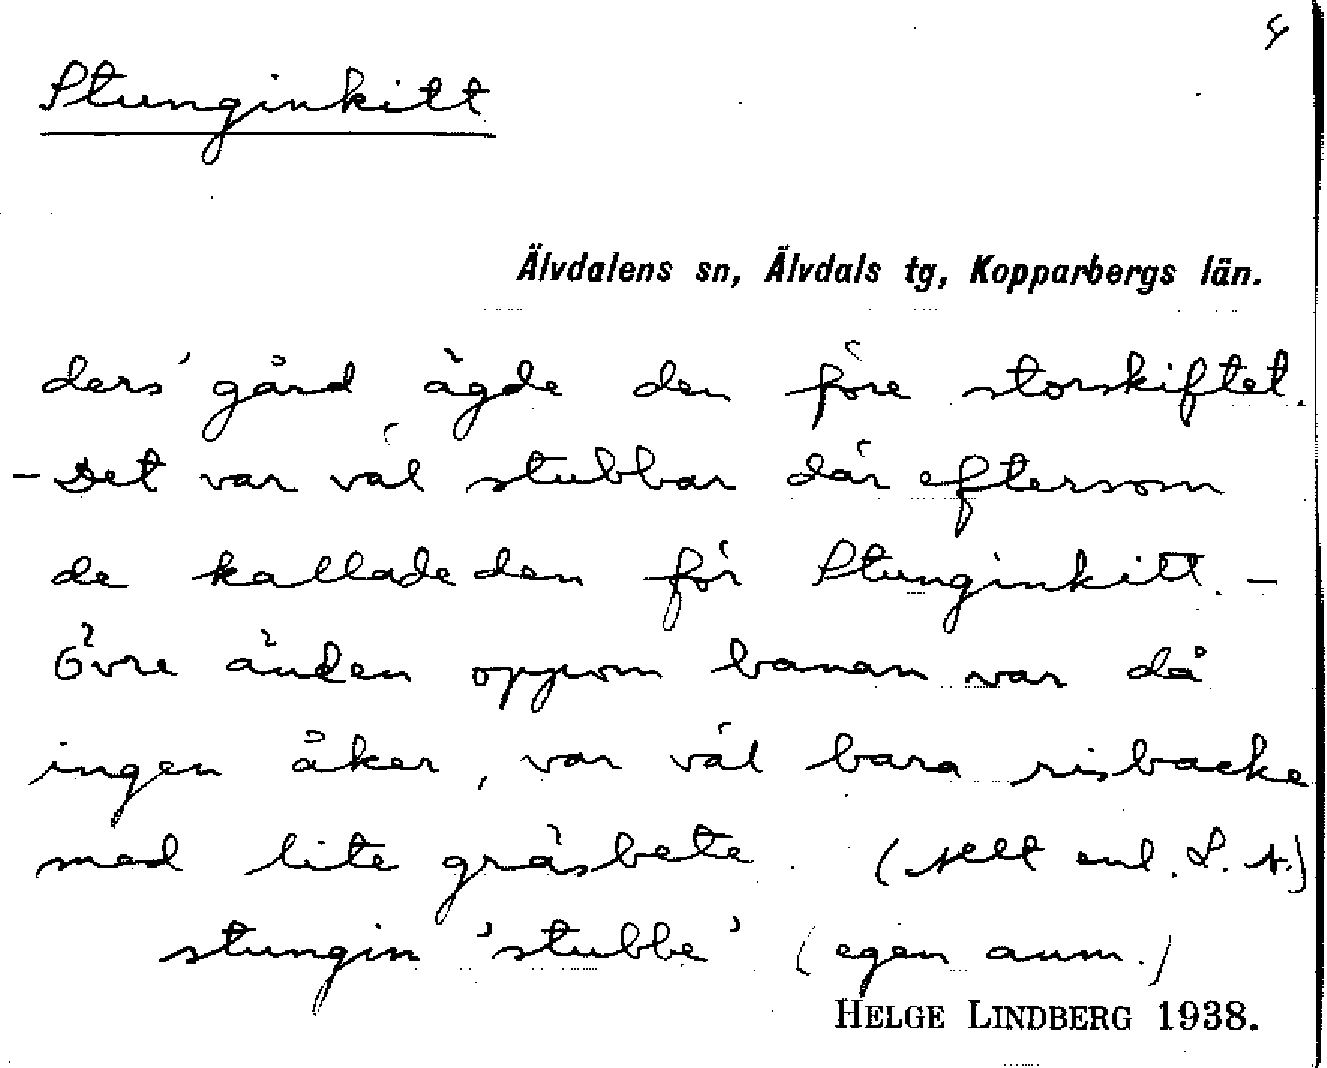 Stunginkitt
Älvdalens sn, Älvdals tg, Kopparbergs län.
ders' gård ägde den före storskiftet.
- Det var väl stubbar där eftersom
de kallade den för Stunginkitt. -
Övre änden oppom banan var då
ingen åker, var väl bara risbacke
med lite gräsbete. (allt enl. S. A.)
stungin 'stubbe' (egen anm.)
HELGE LINDBERG 1938.